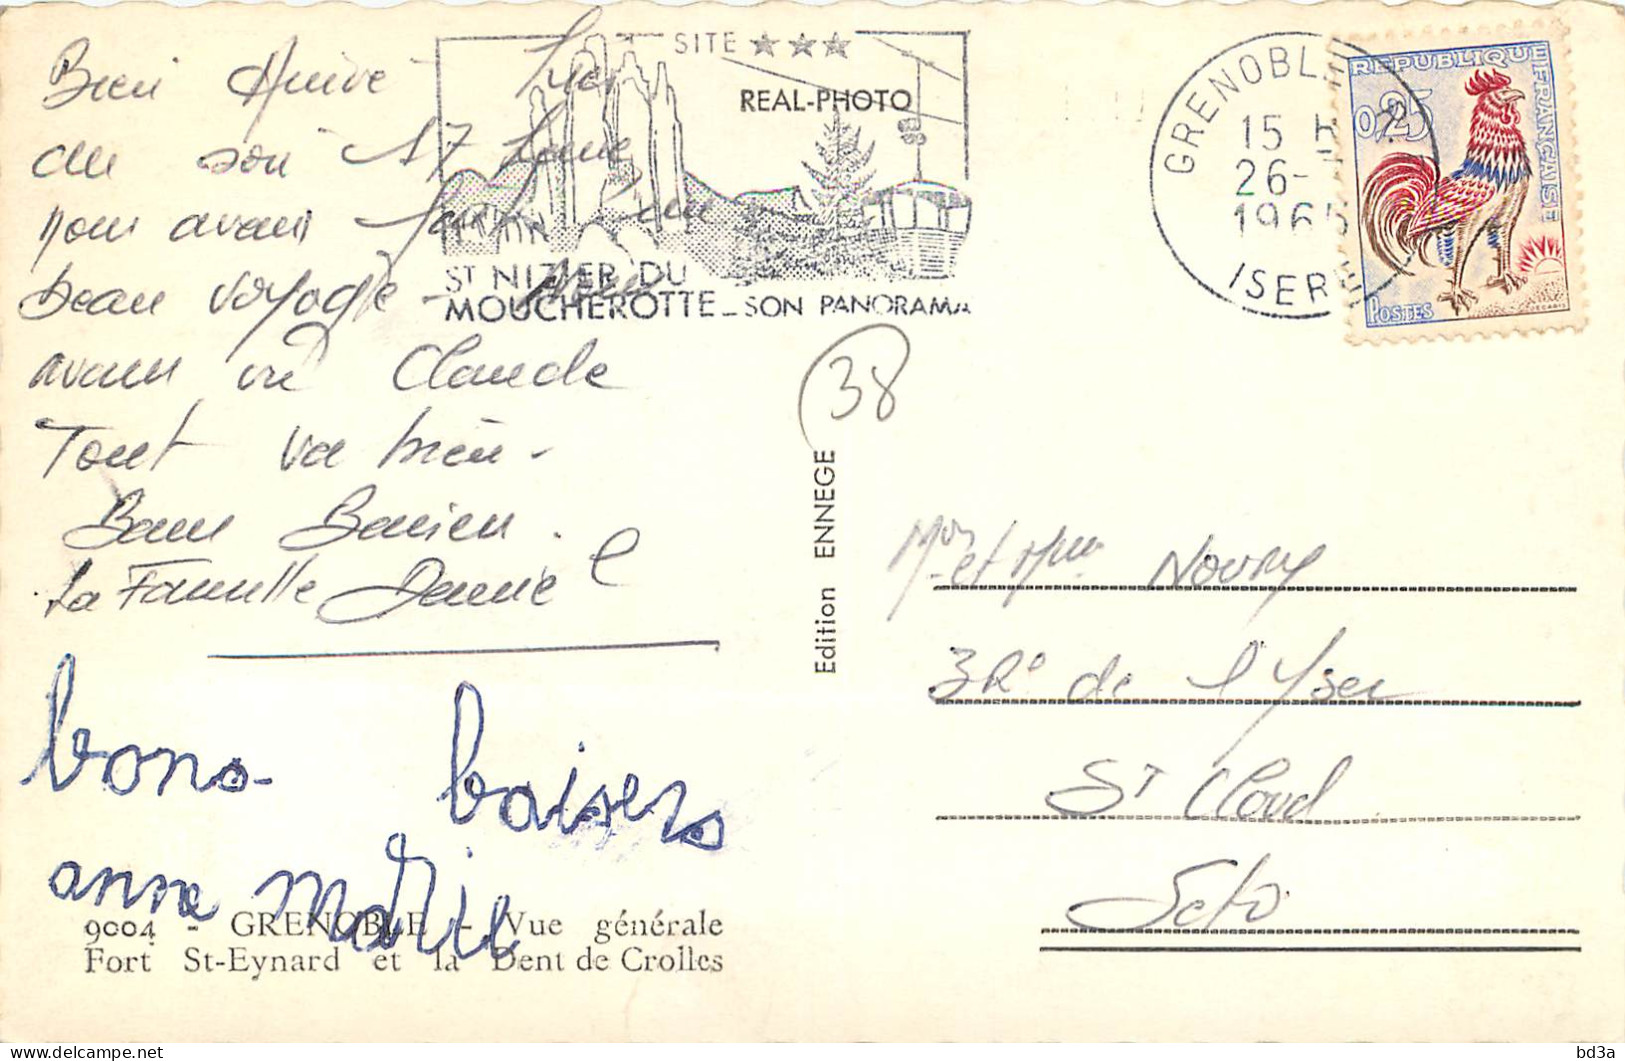 Bien Arrivé
du son 17 heure
nous avons fait un
beau voyage - Nous
avons vu Claude
Tout va bien -
Bons Baisers.
La Famille
bons baisers
anne marie
9004 - GRENOBLE - Vue générale
Fort St-Eynard et la Dent de Crolles
SITE ★★★
REAL-PHOTO
ST NIZIER DU
MOUCHEROTTE - SON PANORAMA
38
Edition ENNEGE
GRENOBLE
15 H
26-
1965
ISERE
REPUBLIQUE FRANÇAISE
0,25
POSTES
DECARIS
Mr et Mme Noury
3 R de l'Yser
St Cloud
S et O
bd3a